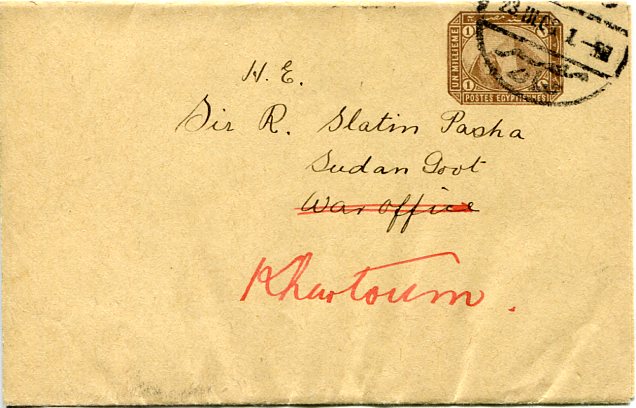 UN MILLIEME
1
1
POSTES EGYPTIENNES
H. E.
Sir R. Slatin Pasha
Sudan Govt
War Office
Khartoum.